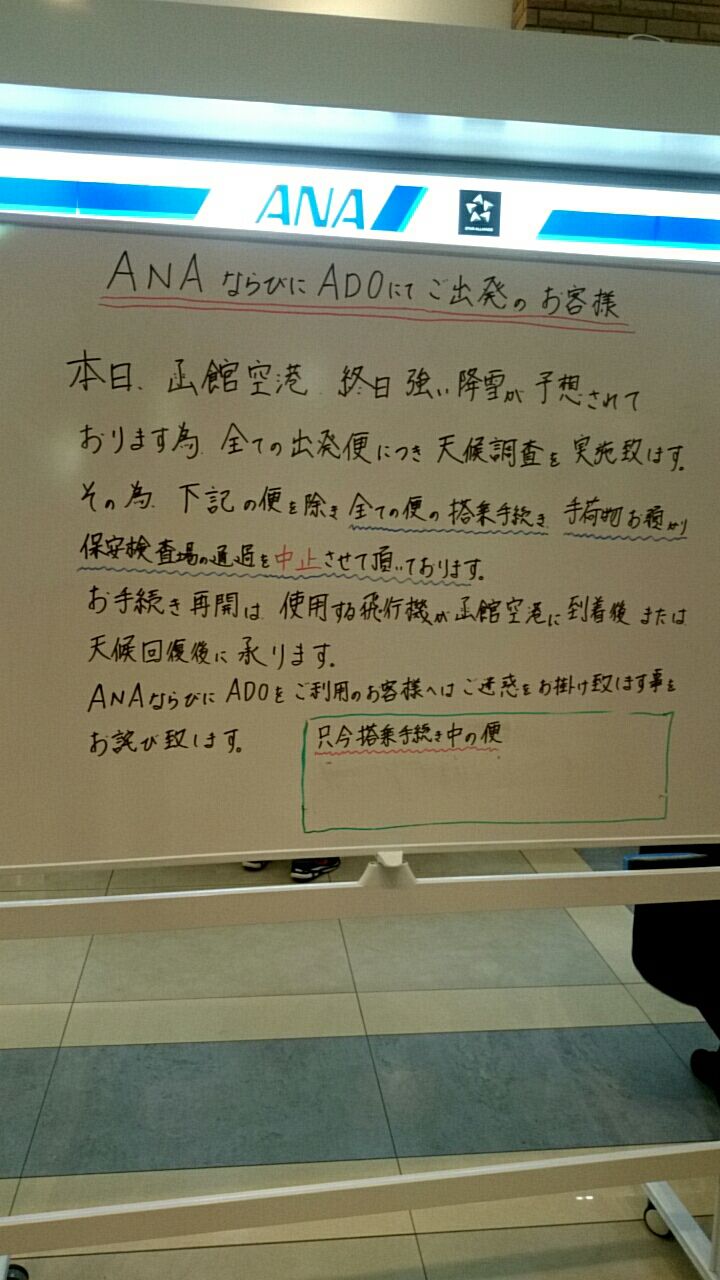 ANA
STAR ALLIANCE
ANAならびにADOにてご出発のお客様
本日、函館空港、終日強い降雪が予想されて
おります為、全ての出発便につき天候調査を実施致します。
その為、下記の便を除き全ての便の搭乗手続き、手荷物お預かり
保安検査場の通過を中止させて頂いております。
お手続き再開は、使用する飛行機が函館空港に到着後または
天候回復後に承ります。
ANAならびにADOをご利用のお客様へはご迷惑をお掛け致します事を
お詫び致します。
只今搭乗手続き中の便